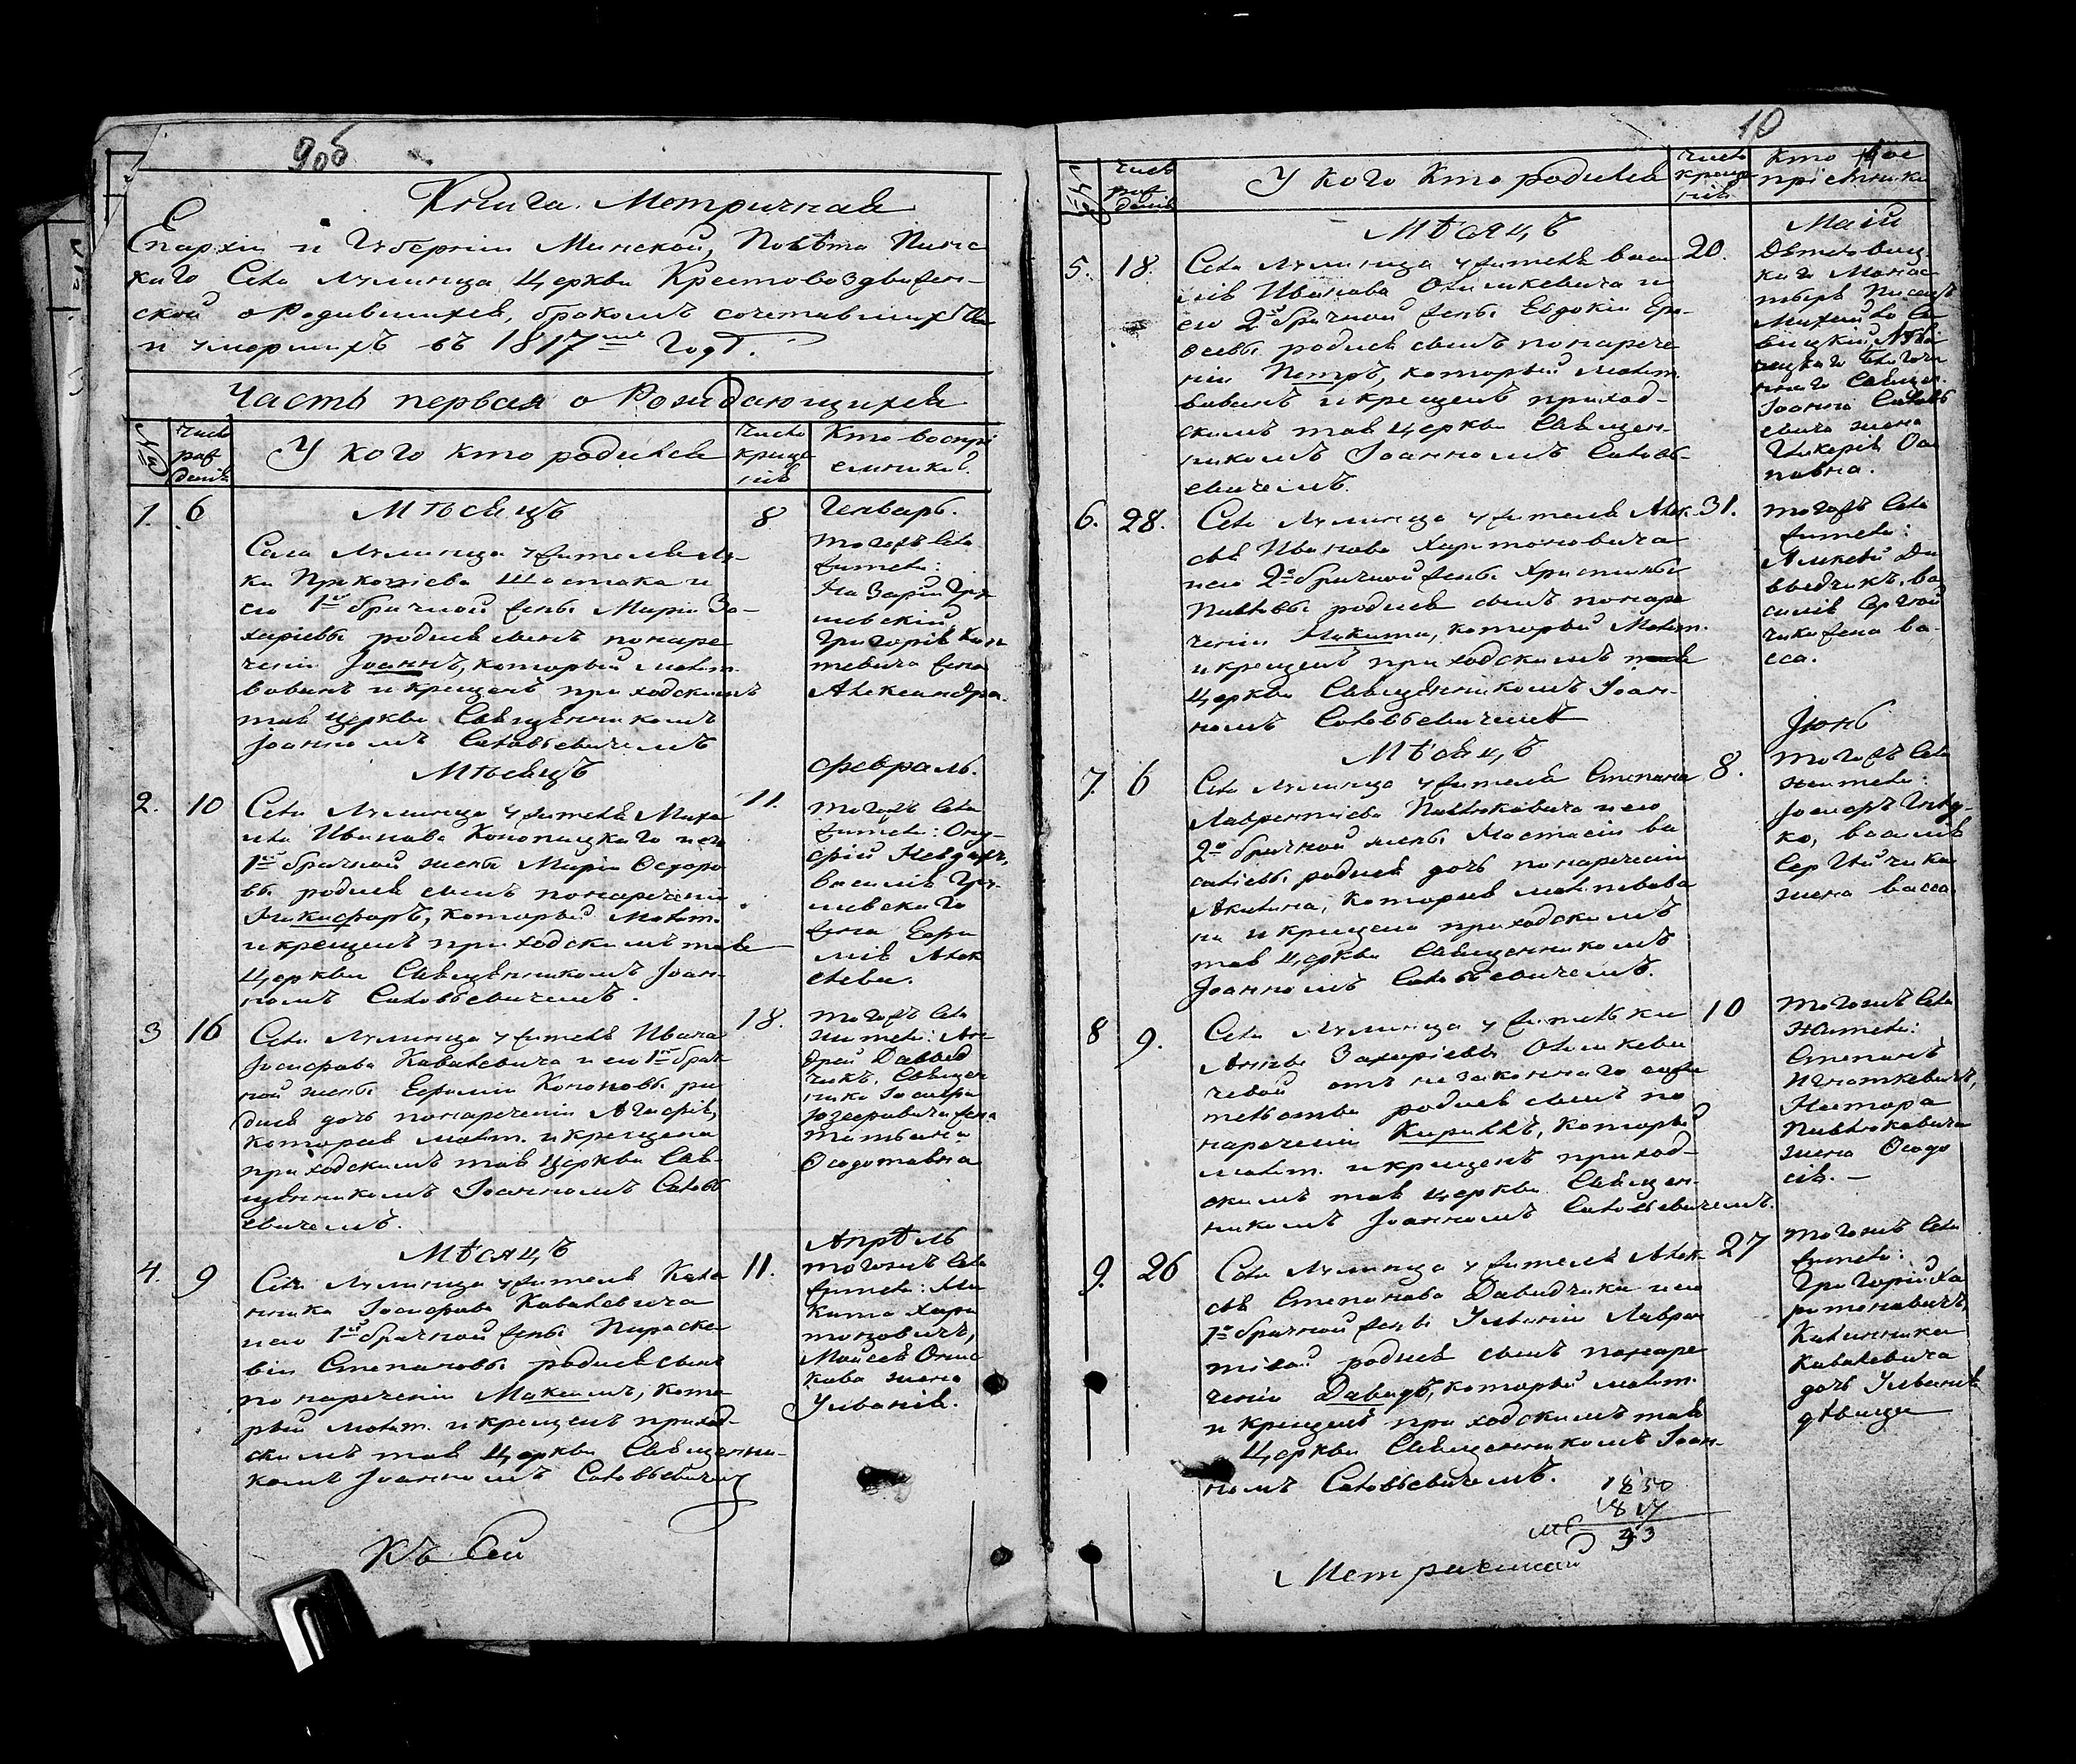 9об
Книга Метричная
Епархіи и Губерніи Минской, Повѣта Пинс
каго Села Лулинца Церкви Крестовоздвижен-
ской о Родившихся, бракомъ сочетавшихся
и умершихъ въ 1817мъ Годѣ.
Часть первая о Рождающихся
№
Число рожденія
У кого кто родился
Число крещенія
Кто воспріемники.
Мѣсяцъ
Генварь.
1. 6
Села Лулинца у жителя Лу-
ки Прокопіева Шостака и
его 1й брачной жены Маріи За-
харіевы родился сынъ по наре
ченіи Іоаннъ, который молит
вованъ и крещенъ приходскимъ
тоя церкви Священникомъ
Іоанномъ Соловьевичемъ
8
тогожъ села
жители:
Назарій Гри
шевскій,
Григорія
тевича жена
Александра.
Мѣсяцъ
февраль.
2. 10
Села Лулинца у жителя Миха
ила Иванова Конопицкаго и его
1й брачной жены Маріи Федоро
вы родился сынъ по нареченіи
Никифоръ, который молит.
и крещенъ приходскимъ тоя
Церкви Священникомъ Іоан-
номъ Соловьевичемъ.
11.
тогожъ села
жители: Ону-
фрій
Василія Гри-
шевскаго
жена Евфи
мія Алек
сѣева.
3 16
Села Лулинца у жителя Ивана
Іосифова Ковалевича и его 1й брач-
ной жены Евфиміи Кононовы ро
дися дочь по нареченіи Агафія,
которая молит. и крещена
приходскимъ тоя Церкви Свя-
щенникомъ Іоанномъ Соловь
евичемъ.
18.
тогожъ села
жители: Ан-
дрей Давыд
чикъ, Священ
ника Іосифа
жена
Татьяна
Федотовна
Мѣсяцъ
Апрѣль
4. 9
Села Лулинца у жителя Кали
нника Іосифова Ковалевича
и его 1й брачной жены Параске
віи Степановы родился сынъ
по нареченіи Максимъ, кото
рый молит. и крещенъ приход-
скимъ тоя Церкви Священни-
комъ Іоанномъ Соловьевичемъ
11.
тогожъ села
жители: Ни
кита Хари
тоновичъ,
Моисея Онис
кова жена
Ульянія.
Къ Сей
10
Число рожденія
У кого кто родился
Число крещенія
Кто вос
пріемники
Мѣсяцъ
Маій
5. 18.
Села Лулинца у жителя Васи
лія Иванова Олишкевича и
его 2й брачной жены Евдокіи Ер-
феевы родился сынъ по нарече
ніи Петръ, который молит.
вованъ и крещенъ приход-
скимъ тоя церкви Священ-
никомъ Іоанномъ Соловь-
евичемъ.
20.
каго Монас
тыря
Священ.
Іоанна Соловь
евича жена
Гликерія Оси
повна.
6. 28.
Села Лулинца у жителя Алек.
сѣя Иванова Харитоновича
и его 2й брачной жены Христины
Павловы родился сынъ по наре
ченіи Никита, который Молит.
и крещенъ приходскимъ тоя
Церкви Священникомъ Іоан-
номъ Соловьевичемъ
31.
тогожъ села
жители:
Алексѣй Да
выдчикъ, Ва
силія Сергѣй
чика жена Ва
сса.
Мѣсяцъ
Іюнь
7. 6
Села Лулинца у жителя Степана
Лаврентіева Павлюковича и его
2й брачной жены Настасіи Ва
силіевы родися дочь по нареченіи
Акилина, которая молитвова
на и крещена приходскимъ
тоя Церкви Священникомъ
Іоанномъ Соловьевичемъ.
8.
тогожъ села
жители:
Іосифъ
ко, Василія
Сергѣйчика
жена Васса
8 9.
Села Лулинца у жительки
Анны Захаріевы Олишкеви
чевой отъ незаконнаго сожи
тельства родился сынъ по
нареченіи Кириллъ, который
молит. и крещенъ приход-
скимъ тоя церкви Священ-
никомъ Іоанномъ Соловьевичемъ.
10
тогожъ села
жители:
Степанъ
Игнаткевичъ,
Нестора
Павлюковича
жена Феодо
сія.
9. 26
Села Лулинца у жителя Алек-
сѣя Степанова Давидчика и его
1й брачной жены Ульяніи Лаврен
тіевой родился сынъ по наре
ченіи Давидъ, который молит.
и крещенъ приходскимъ тоя
Церкви Священникомъ Іоан-
номъ Соловьевичемъ.
27
тогожъ села
жители:
Григорій Ха
ритоновичъ,
Калинника
Ковалевича
дочь Ульянія
дѣвица
1850
1817
33
Метрической